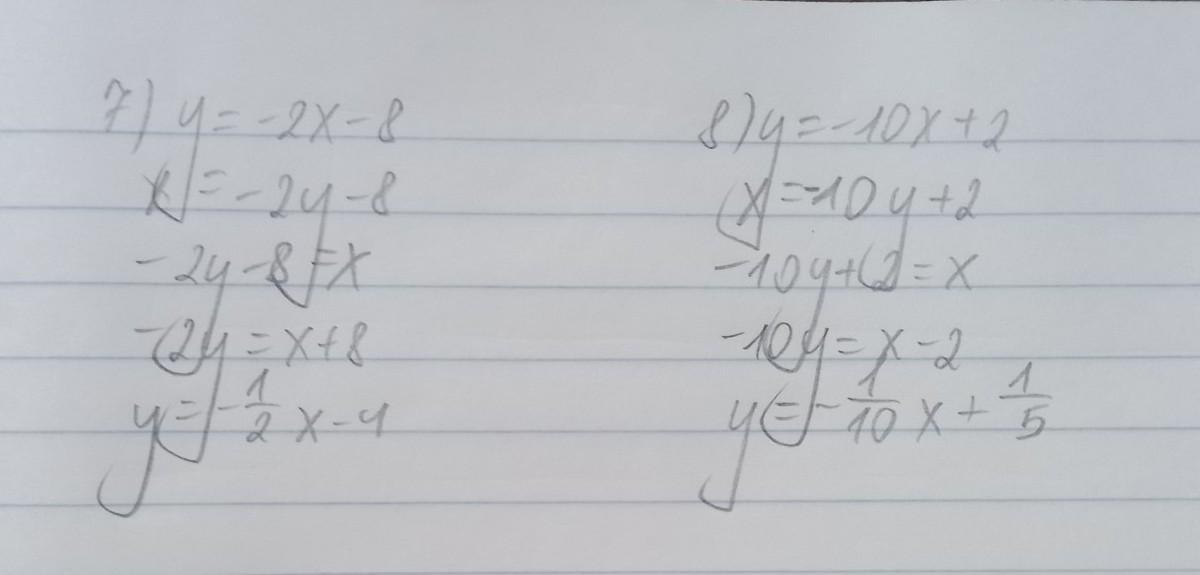 7) y = -2x - 8
x = -2y - 8
-2y - 8 = x
-2y = x + 8
y = -1/2 x - 4
8) y = -10x + 2
x = -10y + 2
-10y + 2 = x
-10y = x - 2
y = -1/10 x + 1/5